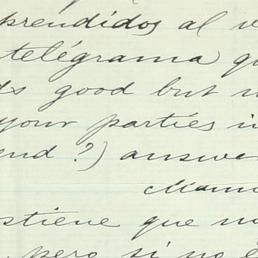 prendidos al v
telégrama qu
ds good but n
your parties i
end?) answe
Mann
stiene que no
pero si no